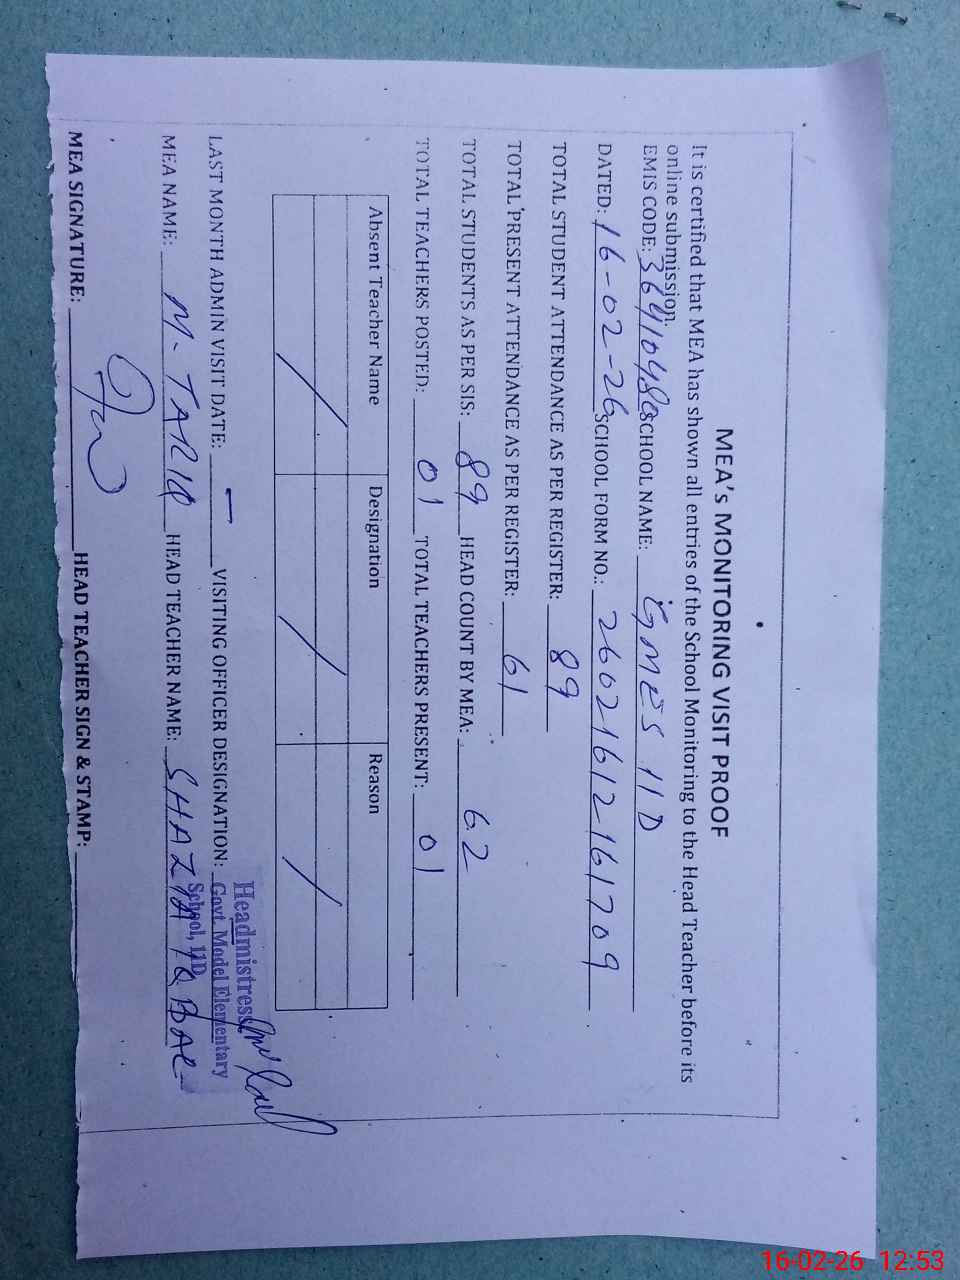 MEA's MONITORING VISIT PROOF
It is certified that MEA has shown all entries of the School Monitoring to the Head Teacher before its
online submission.
EMIS CODE: 36410480 SCHOOL NAME: GMES 11D
DATED: 16-02-26 SCHOOL FORM NO.: 26021612161709
TOTAL STUDENT ATTENDANCE AS PER REGISTER: 89
TOTAL PRESENT ATTENDANCE AS PER REGISTER: 61
TOTAL STUDENTS AS PER SIS: 89 HEAD COUNT BY MEA: 62
TOTAL TEACHERS POSTED: 01 TOTAL TEACHERS PRESENT: 01
Absent Teacher Name Designation Reason
/ / /
LAST MONTH ADMIN VISIT DATE: - VISITING OFFICER DESIGNATION:
Headmistress
Govt. Model Elementary
School, 11D
MEA NAME: M. TARIQ HEAD TEACHER NAME: SHAZIA IQBAL
MEA SIGNATURE: HEAD TEACHER SIGN & STAMP:
16-02-26 12:53